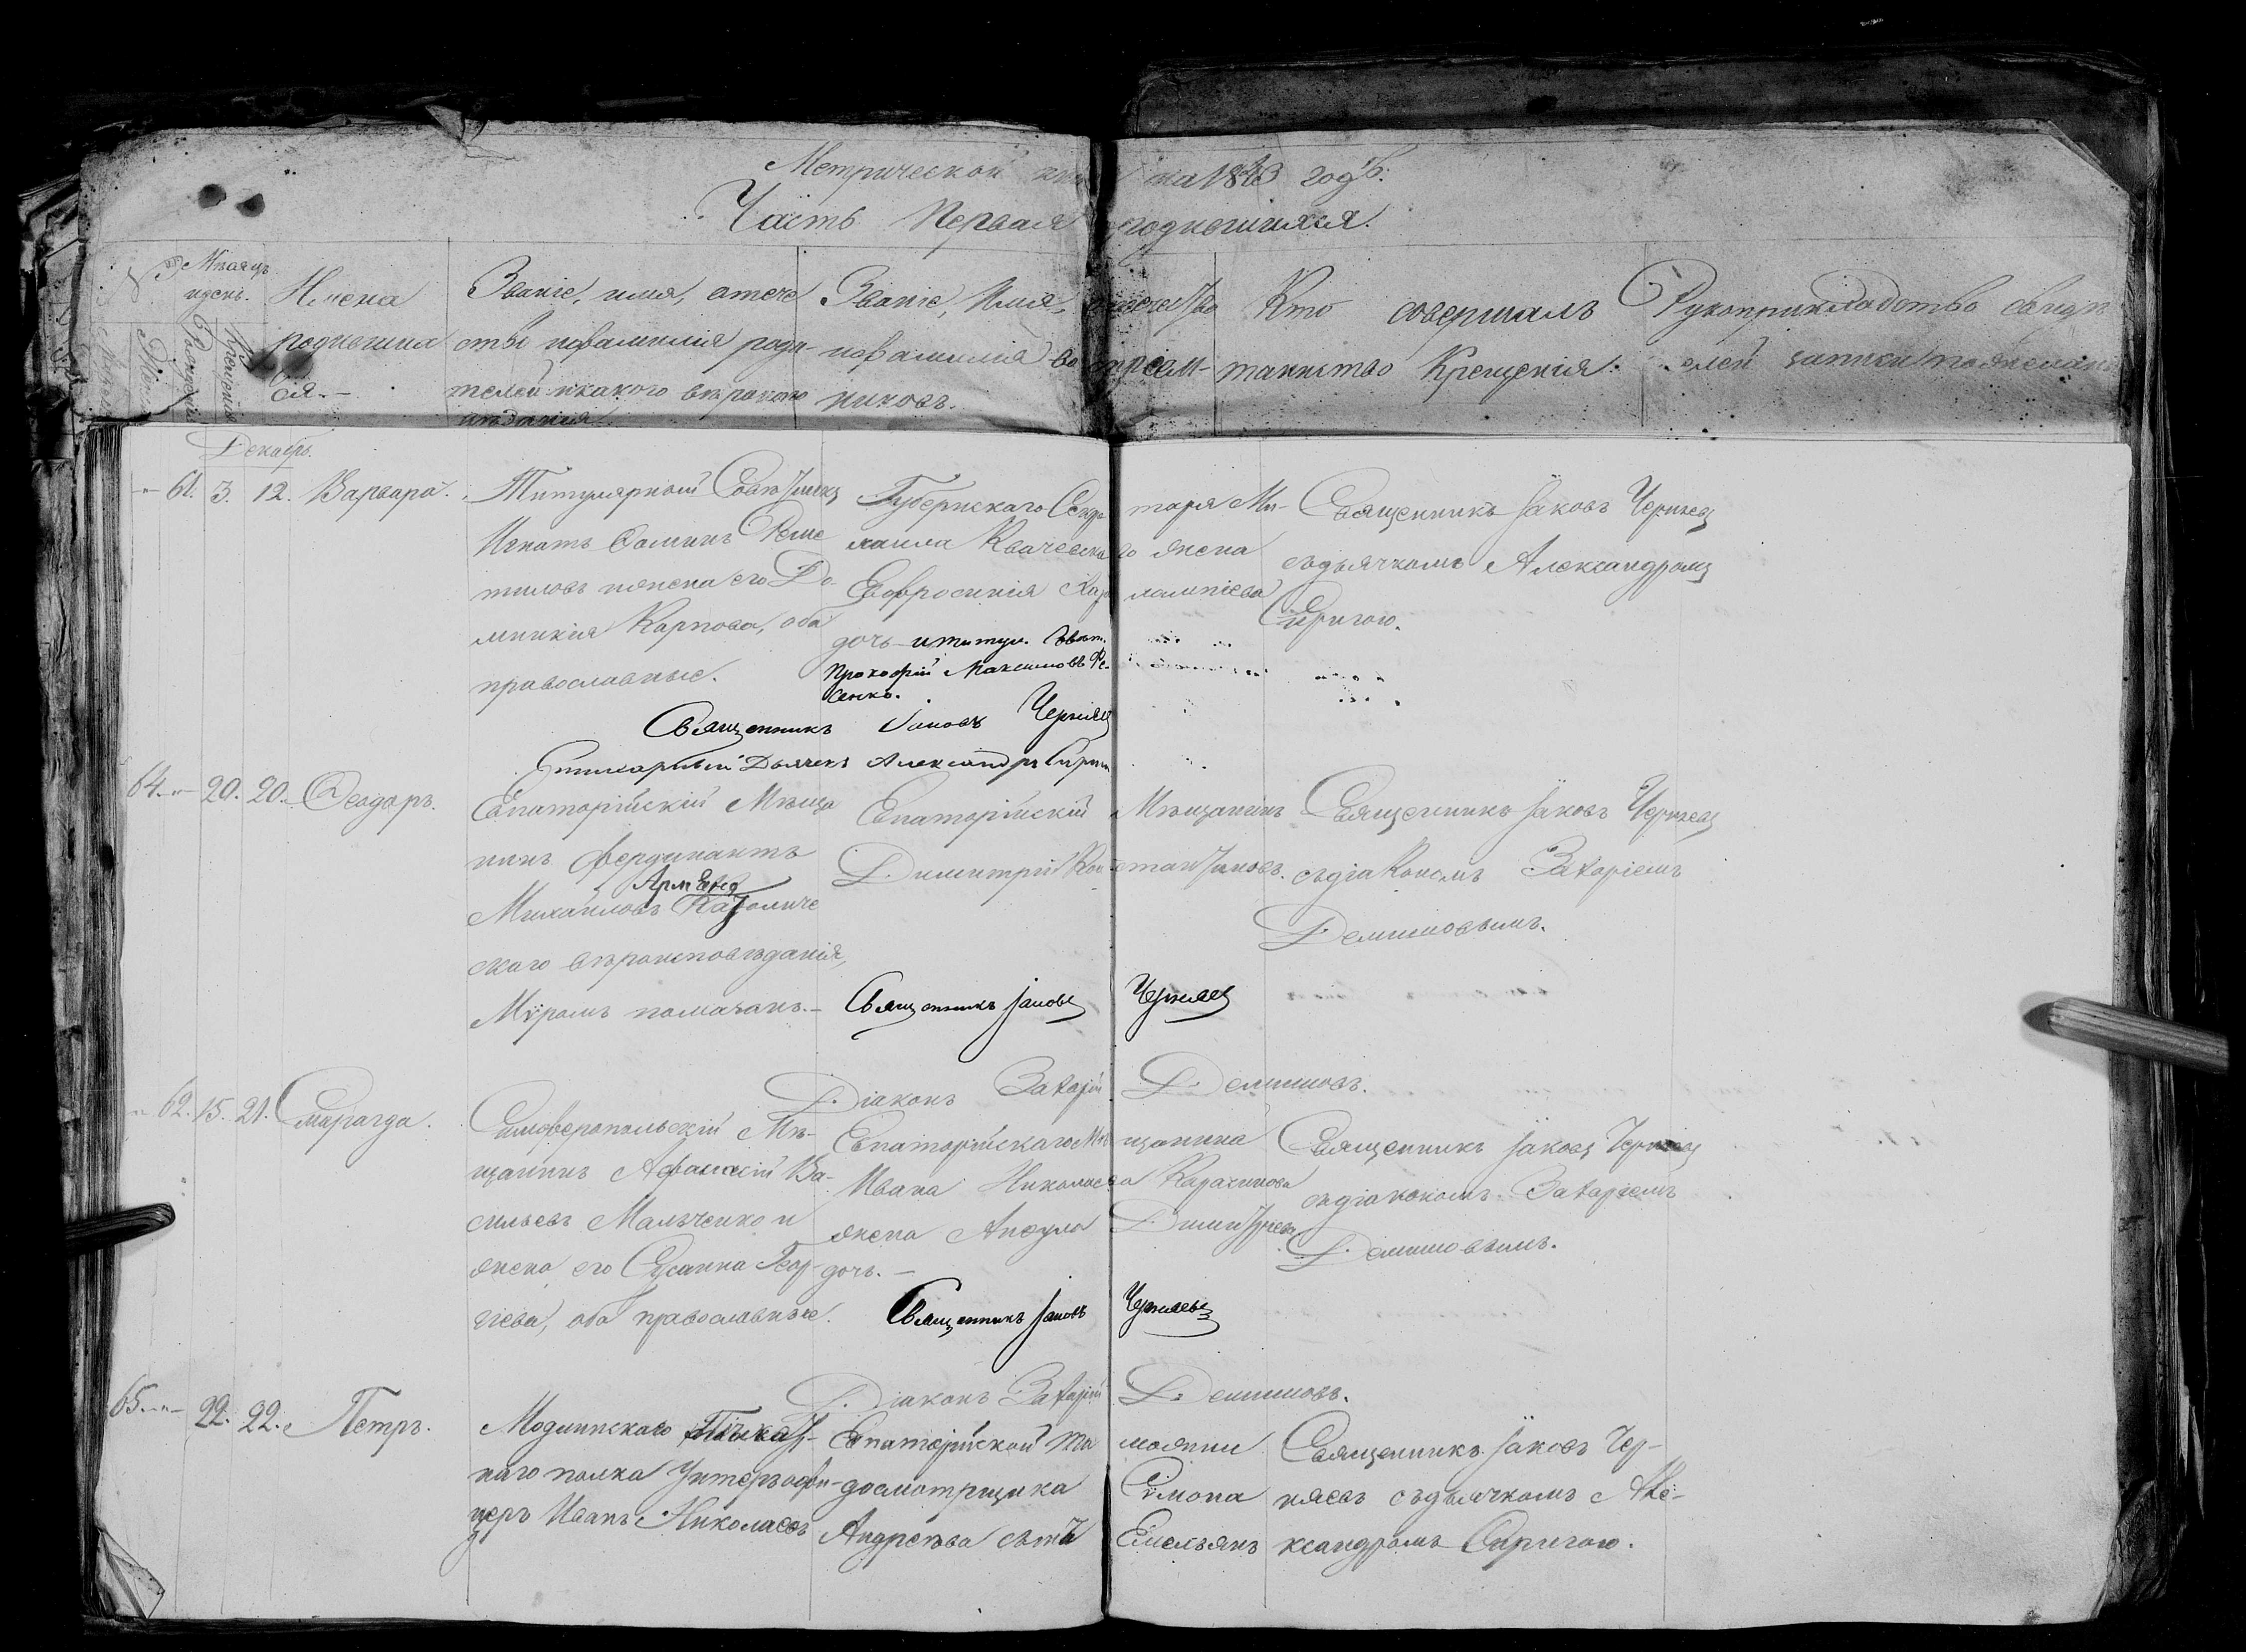 Метрической на 1843 годъ.
Часть Первая родившихся.
Мѣсяцъ
и день.
Рожденія
Крещенія
Имена
родивших
ся.-
Званіе, имя, отече
ство и фамилія роди-
телей и какого вѣроиспо
вѣданія.
Званіе, Имя, отечество
и фамилія воспріем-
никовъ.
Кто совершалъ
таинство Крещенія.
Рукоприкладство свидѣт
елей записи по желанію
Декабрь.
61. 3. 12. Варвара.
Титулярный Совѣтникъ
Игнатъ Фоминъ
и жена его До-
мникія Карпова, оба
православные.
Губернскаго Секре таря Ми-
хаила жена
Евфросинія лампіева
дочь и титул. Совѣт.
Прокофій Максимовъ Фе-
сенко.
Священникъ Іаковъ Чернявъ
съ дьячкомъ Александромъ
Сиригою.
Священникъ Іаковъ Чернявъ
Дьячекъ Александръ
64. 20. 20. Феодоръ.
Евпаторійскій Мѣща
нинъ Фердинантъ
Армено
Михайловъ Католиче
скаго вѣроисповѣданія,
Мѵромъ помазанъ.-
Евпаторійскій Мѣщанинъ
Димитрій Константиновъ.
Священникъ Іаковъ Чернявъ
съ діакономъ Захаріемъ
Демишовымъ.
Священникъ Іаковъ Чернявъ
Діаконъ Захарій Демишовъ.
62. 15. 21. Смарагда.
Симферопольскій Мѣ-
щанинъ Афанасій Ва-
сильевъ Мальченко и
жена его Сусанна Геор-
гіева, оба православные.
Евпаторійскаго Мѣ щанина
Ивана Николаева Карахинова
жена Анжула Димитріева
дочь.-
Священникъ Іаковъ Чернявъ
съ діакономъ Захаріемъ
Демишовымъ.
Священникъ Іаковъ Чернявъ
Діаконъ Захарій Демишовъ.
65. 22. 22. Петръ.
Модлинскаго Пѣхот-
наго полка Унтеръ офи-
церъ Иванъ Николаевъ
Евпаторійской Та можни
досмотрщика Симона
Андреева сынъ Емельянъ
Священникъ Іаковъ Чер-
нявъ съ дьячкомъ Але-
ксандромъ Сиригою.